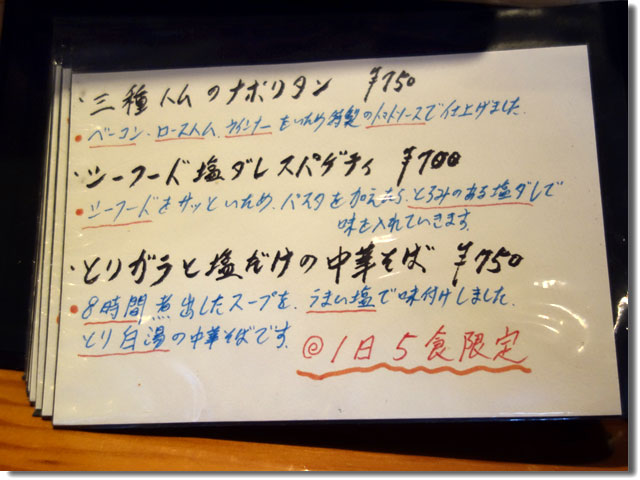 ・三種ハムのナポリタン ¥750
・ベーコン、ローストハム、ウインナーをいため特製のトマトソースで仕上げました。
・シーフード塩ダレスパゲティ ¥700
・シーフードをサッといため、パスタを加えたら、とろみのある塩ダレで
味を入れていきます。
・とりガラと塩だけの中華そば ¥750
・8時間煮出したスープを、うまい塩で味付けしました。
とり白湯の中華そばです。
@1日5食限定